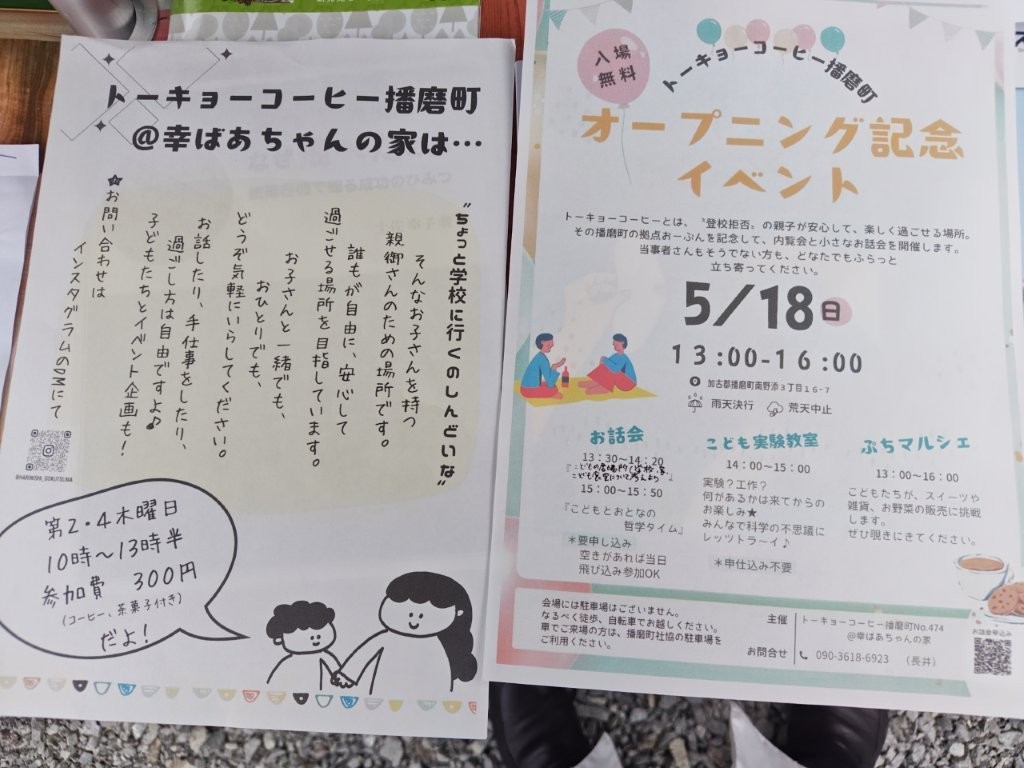 トーキョーコーヒー播磨町
@幸ばあちゃんの家は…
"ちょっと学校に行くのしんどいな"
そんなお子さんを持つ
親御さんのための場所です。
誰もが自由に、安心して
過ごせる場所を目指しています。
お子さんと一緒でも、
おひとりでも、
どうぞ気軽にいらしてください。
お話したり、手仕事をしたり、
過ごし方は自由ですよ♪
子どもたちとイベント企画も!
☆お問い合わせは
インスタグラムのDMにて
第2・4木曜日
10時~13時半
参加費 300円
(コーヒー、茶菓子付き)
だよ!
入場
無料
トーキョーコーヒー播磨町
オープニング記念
イベント
トーキョーコーヒーとは、"登校拒否"の親子が安心して、楽しく過ごせる場所。
その播磨町の拠点おーぷんを記念して、内覧会と小さなお話会を開催します。
当事者さんもそうでない方も、どなたでもふらっと
立ち寄ってください。
5/18日
13:00-16:00
加古郡播磨町南野添3丁目16-7
雨天決行 荒天中止
お話会
13:30~14:20
15:00~15:50
『こどもとおとなの
哲学タイム』
*要申し込み
空きがあれば当日
飛び込み参加OK
こども実験教室
14:00~15:00
実験?工作?
何があるかは来てからの
お楽しみ★
みんなで科学の不思議に
レッツトラーイ♪
*申仕込み不要
ぷちマルシェ
13:00~16:00
こどもたちが、スイーツや
雑貨、お野菜の販売に挑戦
します。
ぜひ覗きにきてください。
会場には駐車場はございません。
なるべく徒歩、自転車でお越しください。
車でご来場の方は、播磨町社協の駐車場を
ご利用ください。
主催 トーキョーコーヒー播磨町No.474
@幸ばあちゃんの家
お問合せ 090-3618-6923 (長井)
お話会申込み